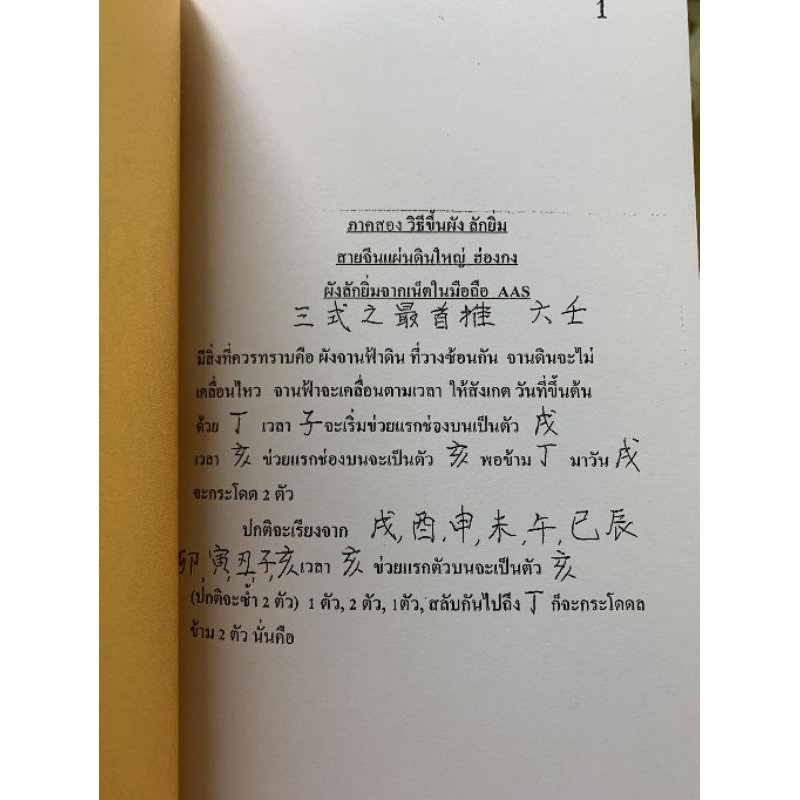 1
ภาคสอง วิธีขึ้นผัง ลักยิ่ม
สายจีนแผ่นดินใหญ่ ฮ่องกง
ผังลักยิ่มจากเน็ตในมือถือ AAS
三式之最首推 六壬
มีสิ่งที่ควรทราบคือ ผังจานฟ้าดิน ที่วางซ้อนกัน จานดินจะไม่
เคลื่อนไหว จานฟ้าจะเคลื่อนตามเวลา ให้สังเกต วันที่ขึ้นต้น
ด้วย 丁 เวลา 子 จะเริ่มข่วยแรกช่องบนเป็นตัว 戌
เวลา 亥 ข่วยแรกช่องบนจะเป็นตัว 亥 พอข้าม 丁 มาวัน 戌
จะกระโดด 2 ตัว
ปกติจะเรียงจาก 戌, 酉, 申, 未, 午, 巳 辰
卯 寅, 丑, 子, 亥 เวลา 亥 ข่วยแรกตัวบนจะเป็นตัว 亥
(ปกติจะซ้ำ 2 ตัว) 1 ตัว, 2 ตัว, 1ตัว, สลับกันไปถึง 丁 ก็จะกระโดดล
ข้าม 2 ตัว นั่นคือ